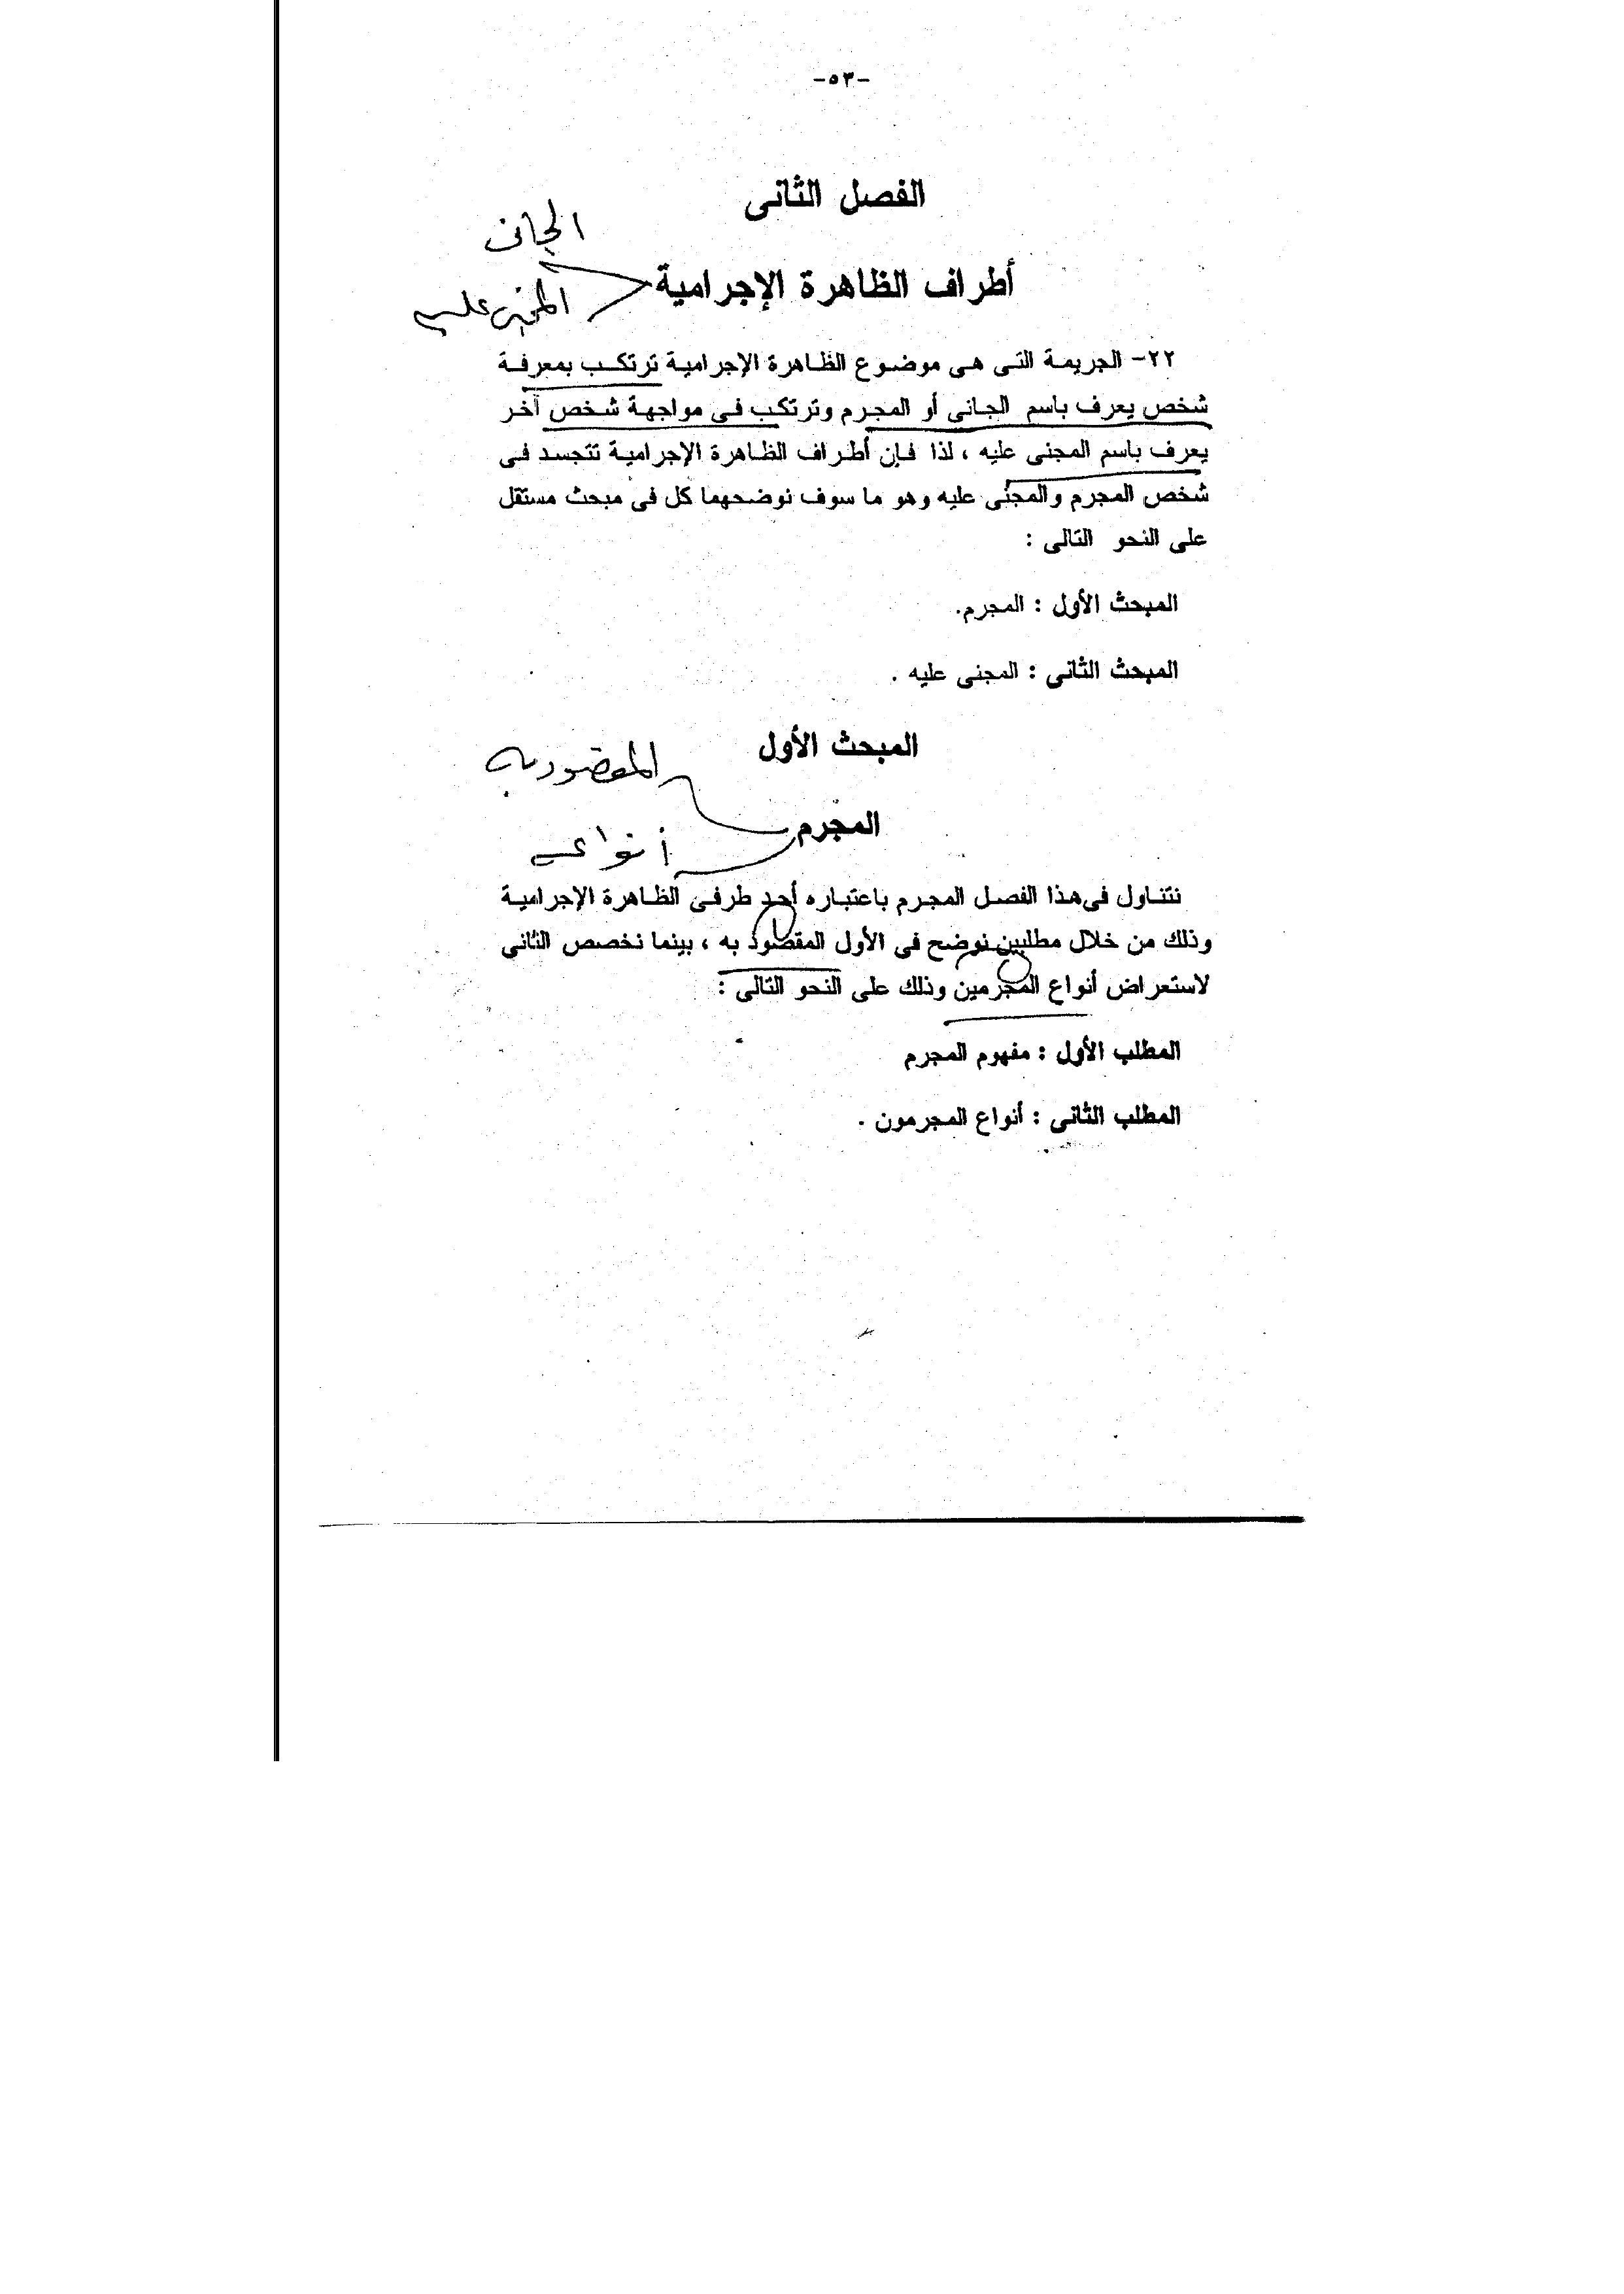 -٥٣-
الفصل الثانى
الجانى
أطراف الظاهرة الإجرامية
المجنى عليه
٢٢- الجريمة التى هى موضوع الظاهرة الإجرامية ترتكب بمعرفة
شخص يعرف باسم الجانى أو المجرم وترتكب فى مواجهة شخص آخر
يعرف باسم المجنى عليه ، لذا فإن أطراف الظاهرة الإجرامية تتجسد فى
شخص المجرم والمجنى عليه وهو ما سوف نوضحهما كل فى مبحث مستقل
على النحو التالى :
المبحث الأول : المجرم.
المبحث الثانى : المجنى عليه .
المبحث الأول
المقصود به
المجرم
أنواعه
نتناول فى هذا الفصل المجرم باعتباره أحد طرفى الظاهرة الإجرامية
وذلك من خلال مطلبين نوضح فى الأول المقصود به ، بينما نخصص الثانى
لاستعراض أنواع المجرمين وذلك على النحو التالى :
المطلب الأول : مفهوم المجرم
المطلب الثانى : أنواع المجرمون .